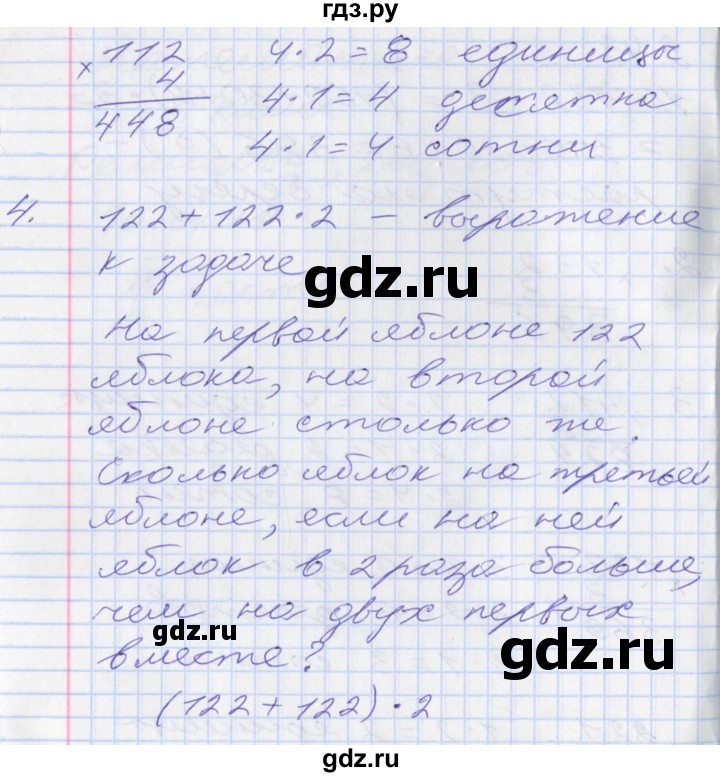 гдз.ру
112 4·2=8 единицы
× 4 4·1=4 десятка
448 4·1=4 сотни
4. 122+122·2 – выражение
к задаче
gdz.ru
На первой яблоне 122
яблока, на второй
яблоне столько же.
gdz.ru
Сколько яблок на третьей
яблоне, если на ней
яблок в 2 раза больше,
чем на двух первых
gdz.ru
gdz.ru
вместе?
(122+122)·2
gdz.ru